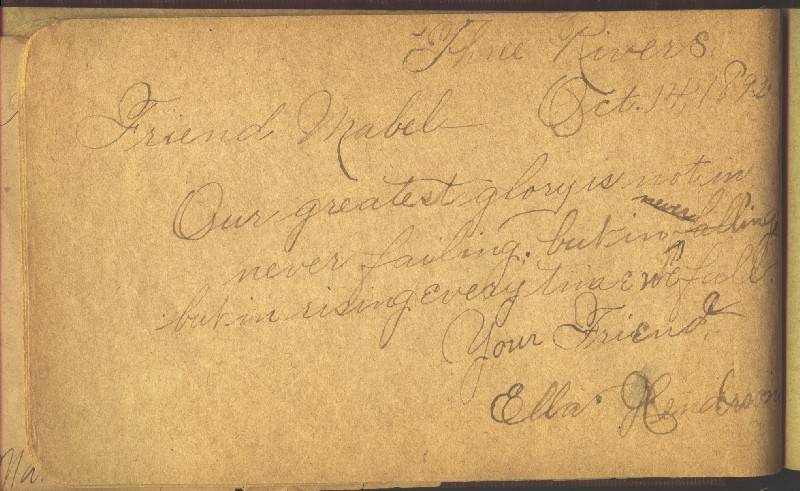 Three Rivers
Oct. 14, 1892
Friend Mabel
Our greatest glory is not in
never
never failing. but in falling,
but in rising every time we fall.
Your Friend,
Ella Henderson
Ma.